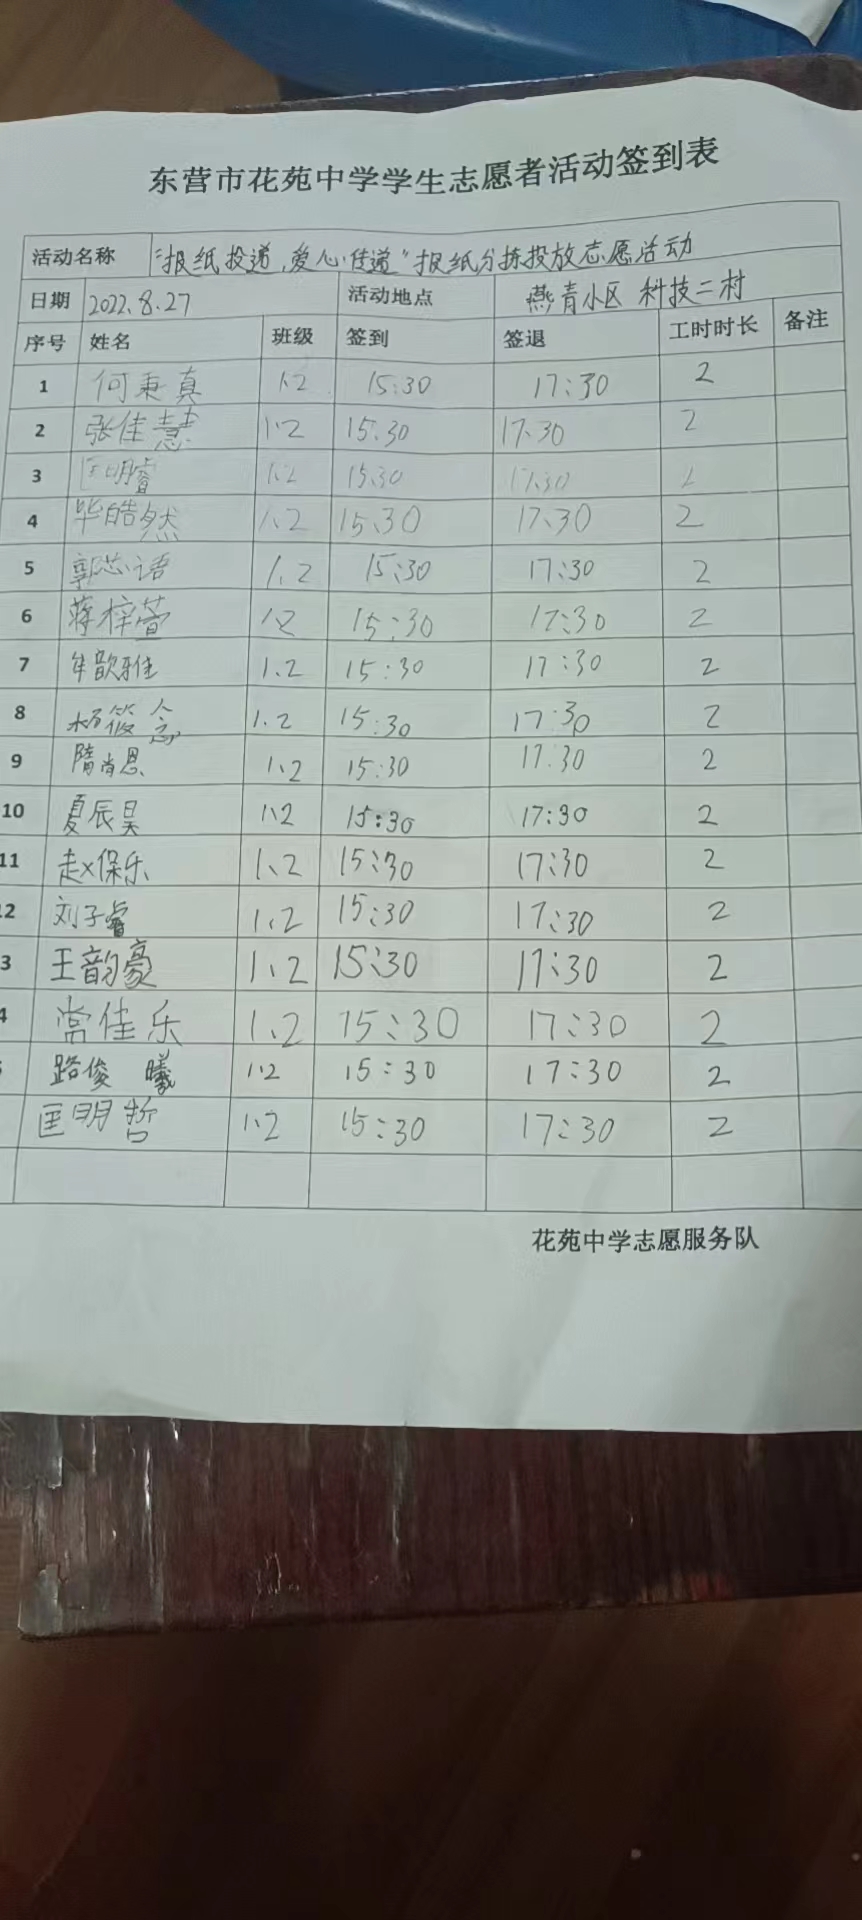 东营市花苑中学学生志愿者活动签到表
活动名称 "报纸投递,爱心传递"报纸分拣投放志愿活动
日期 2022.8.27 活动地点 燕青小区 科技二村
序号 姓名 班级 签到 签退 工时时长 备注
1 何秉真 1.2 15:30 17:30 2
2 张佳慧 1.2 15:30 17:30 2
3 匡明睿 1.2 15:30 17:30 2
4 毕皓然 1.2 15:30 17:30 2
5 郭芯语 1.2 15:30 17:30 2
6 蒋梓萱 1.2 15:30 17:30 2
7 牟歆雅 1.2 15:30 17:30 2
8 杨筱念 1.2 15:30 17:30 2
9 隋尚恩 1.2 15:30 17:30 2
10 夏辰昊 1.2 15:30 17:30 2
11 赵保乐 1.2 15:30 17:30 2
12 刘子睿 1.2 15:30 17:30 2
3 王韵豪 1.2 15:30 17:30 2
4 常佳乐 1.2 15:30 17:30 2
路俊曦 1.2 15:30 17:30 2
匡明哲 1.2 15:30 17:30 2
花苑中学志愿服务队